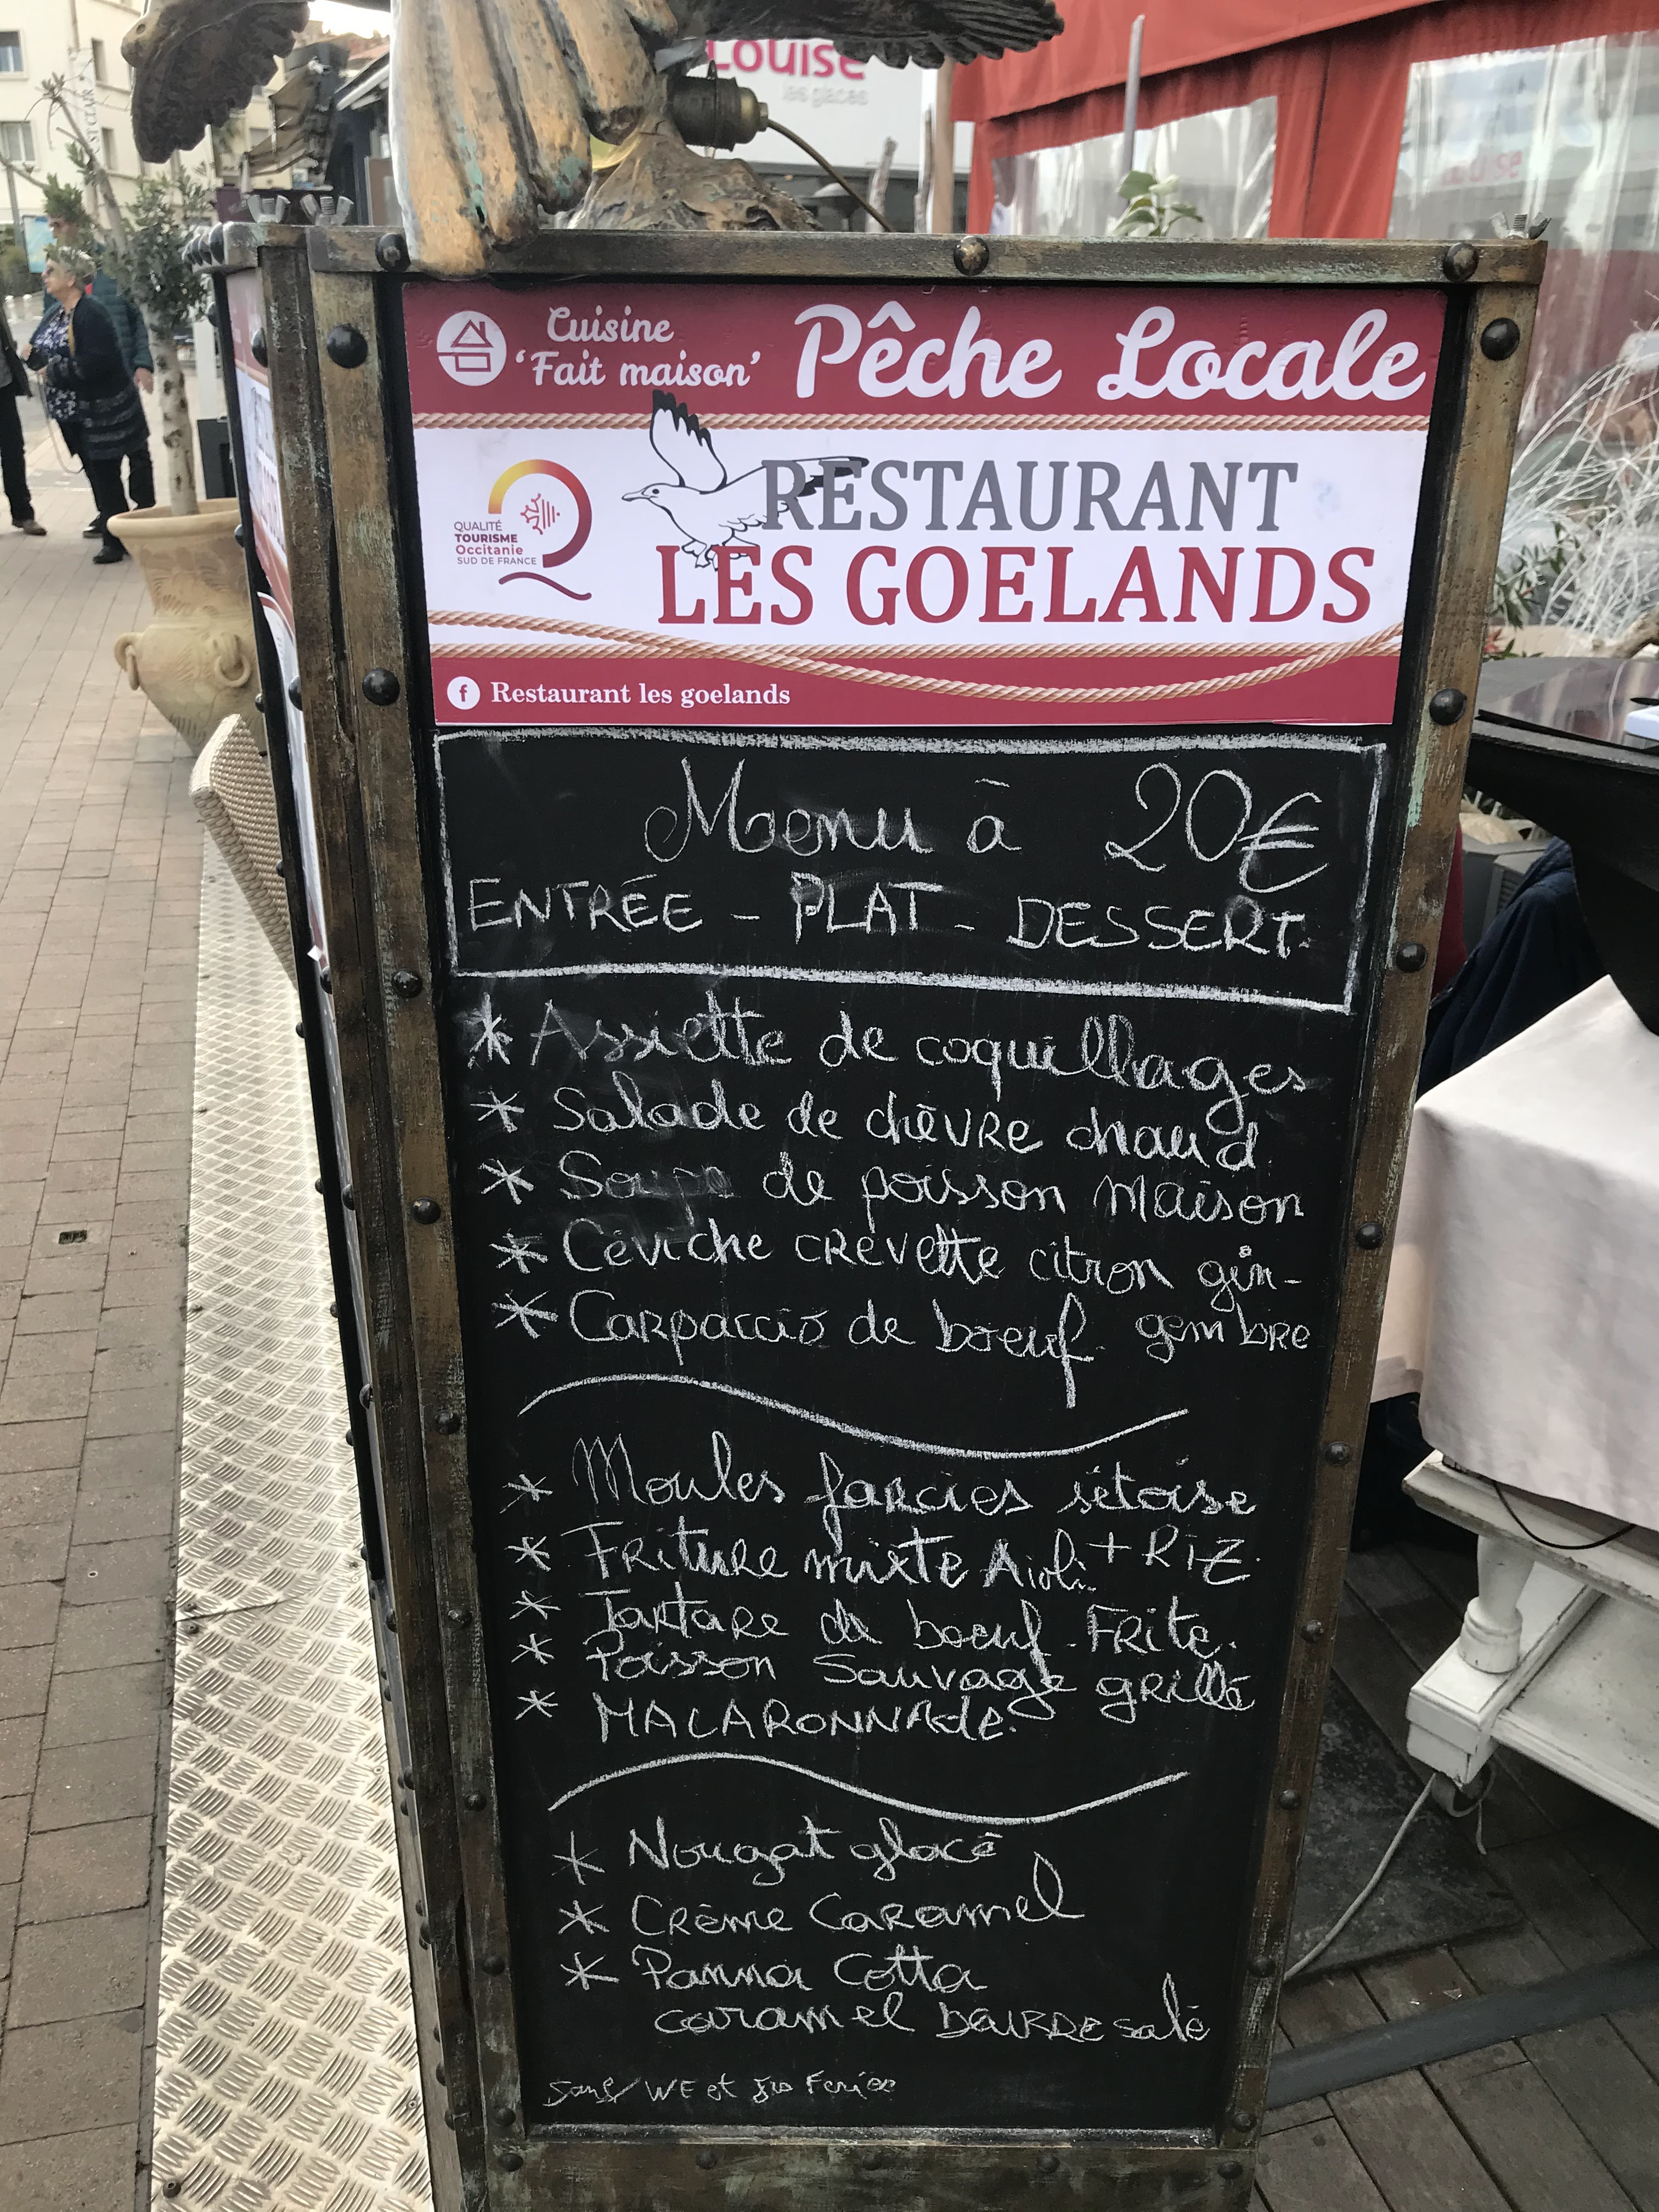 Louise
les glaces
ST CLAIR
Cuisine
'Fait maison'
Pêche Locale
QUALITÉ
TOURISME
Occitanie
SUD DE FRANCE
RESTAURANT
LES GOELANDS
f Restaurant les goelands
Menu à 20€
ENTRÉE - PLAT - DESSERT.
* Assiette de coquillages
* Salade de chèvre chaud
* Soupe de poisson maison
* Céviche crevette citron gin-
* Carpaccio de boeuf. gembre
* Moules farcies sétoise
* Friture mixte Aioli + Riz.
* Tartare de boeuf. Frite.
* Poisson Sauvage grillé
* MACARONNAde.
* Nougat glacé
* Crème Caramel
* Panna Cotta
caramel beurre salé
Sauf WE et Jrs Feriés